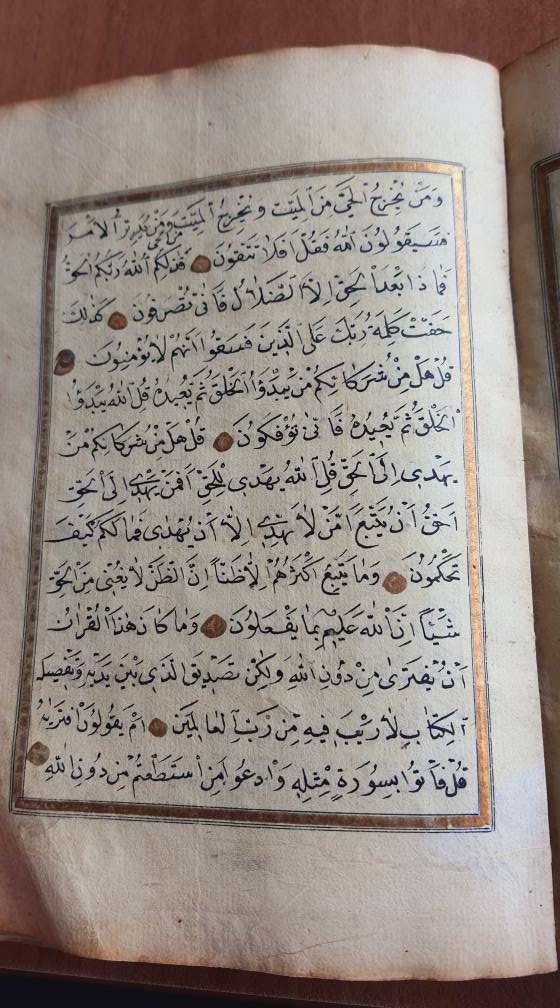 وَمَنْ يُخْرِجُ الْحَيَّ مِنَ الْمَيِّتِ وَيُخْرِجُ الْمَيِّتَ مِنَ الْحَيِّ وَمَنْ يُدَبِّرُ الْاَمْرَ
فَسَيَقُولُونَ اللّٰهُ فَقُلْ اَفَلَا تَتَّقُونَ فَذٰلِكُمُ اللّٰهُ رَبُّكُمُ الْحَقُّ
فَمَا ذَا بَعْدَ الْحَقِّ اِلَّا الضَّلَالُ فَاَنّٰى تُصْرَفُونَ كَذٰلِكَ
حَقَّتْ كَلِمَةُ رَبِّكَ عَلَى الَّذِينَ فَسَقُوا اَنَّهُمْ لَا يُؤْمِنُونَ
قُلْ هَلْ مِنْ شُرَكَائِكُمْ مَنْ يَبْدَؤُا الْخَلْقَ ثُمَّ يُعِيدُهُ قُلِ اللّٰهُ يَبْدَؤُا
الْخَلْقَ ثُمَّ يُعِيدُهُ فَاَنّٰى تُؤْفَكُونَ قُلْ هَلْ مِنْ شُرَكَائِكُمْ مَنْ
يَهْدِى اِلَى الْحَقِّ قُلِ اللّٰهُ يَهْدِى لِلْحَقِّ اَفَمَنْ يَهْدِى اِلَى الْحَقِّ
اَحَقُّ اَنْ يُتَّبَعَ اَمَّنْ لَا يَهِدِّى اِلَّا اَنْ يُهْدٰى فَمَا لَكُمْ كَيْفَ
تَحْكُمُونَ وَمَا يَتَّبِعُ اَكْثَرُهُمْ اِلَّا ظَنًّا اِنَّ الظَّنَّ لَا يُغْنِى مِنَ الْحَقِّ
شَيْئًا اِنَّ اللّٰهَ عَلِيمٌ بِمَا يَفْعَلُونَ وَمَا كَانَ هٰذَا الْقُرْاٰنُ
اَنْ يُفْتَرٰى مِنْ دُونِ اللّٰهِ وَلٰكِنْ تَصْدِيقَ الَّذِى بَيْنَ يَدَيْهِ وَتَفْصِيلَ
الْكِتَابِ لَا رَيْبَ فِيهِ مِنْ رَبِّ الْعَالَمِينَ اَمْ يَقُولُونَ افْتَرٰيهُ
قُلْ فَاْتُوا بِسُورَةٍ مِثْلِهِ وَادْعُوا مَنِ اسْتَطَعْتُمْ مِنْ دُونِ اللّٰهِ